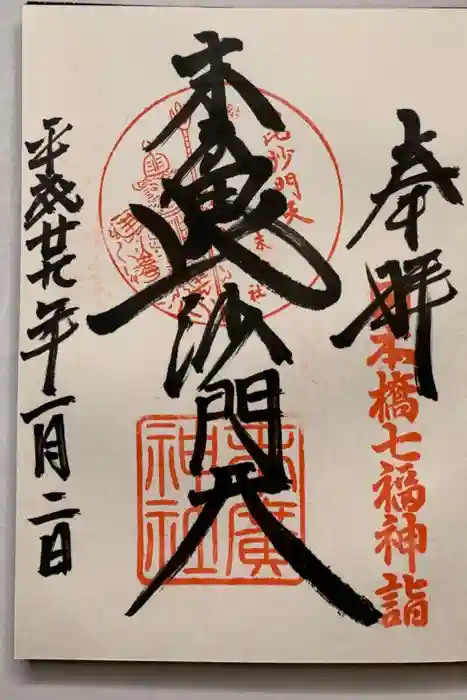 奉拝
日本橋七福神詣
末廣
毘沙門天
毘沙門天
末廣神社
平成廿九年一月二日